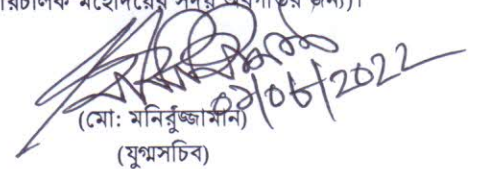 মহোদয়ের সদয় অবগতির জন্য)।
০২/০৬/2022
(মো: মনিরুজ্জামান)
(যুগ্মসচিব)